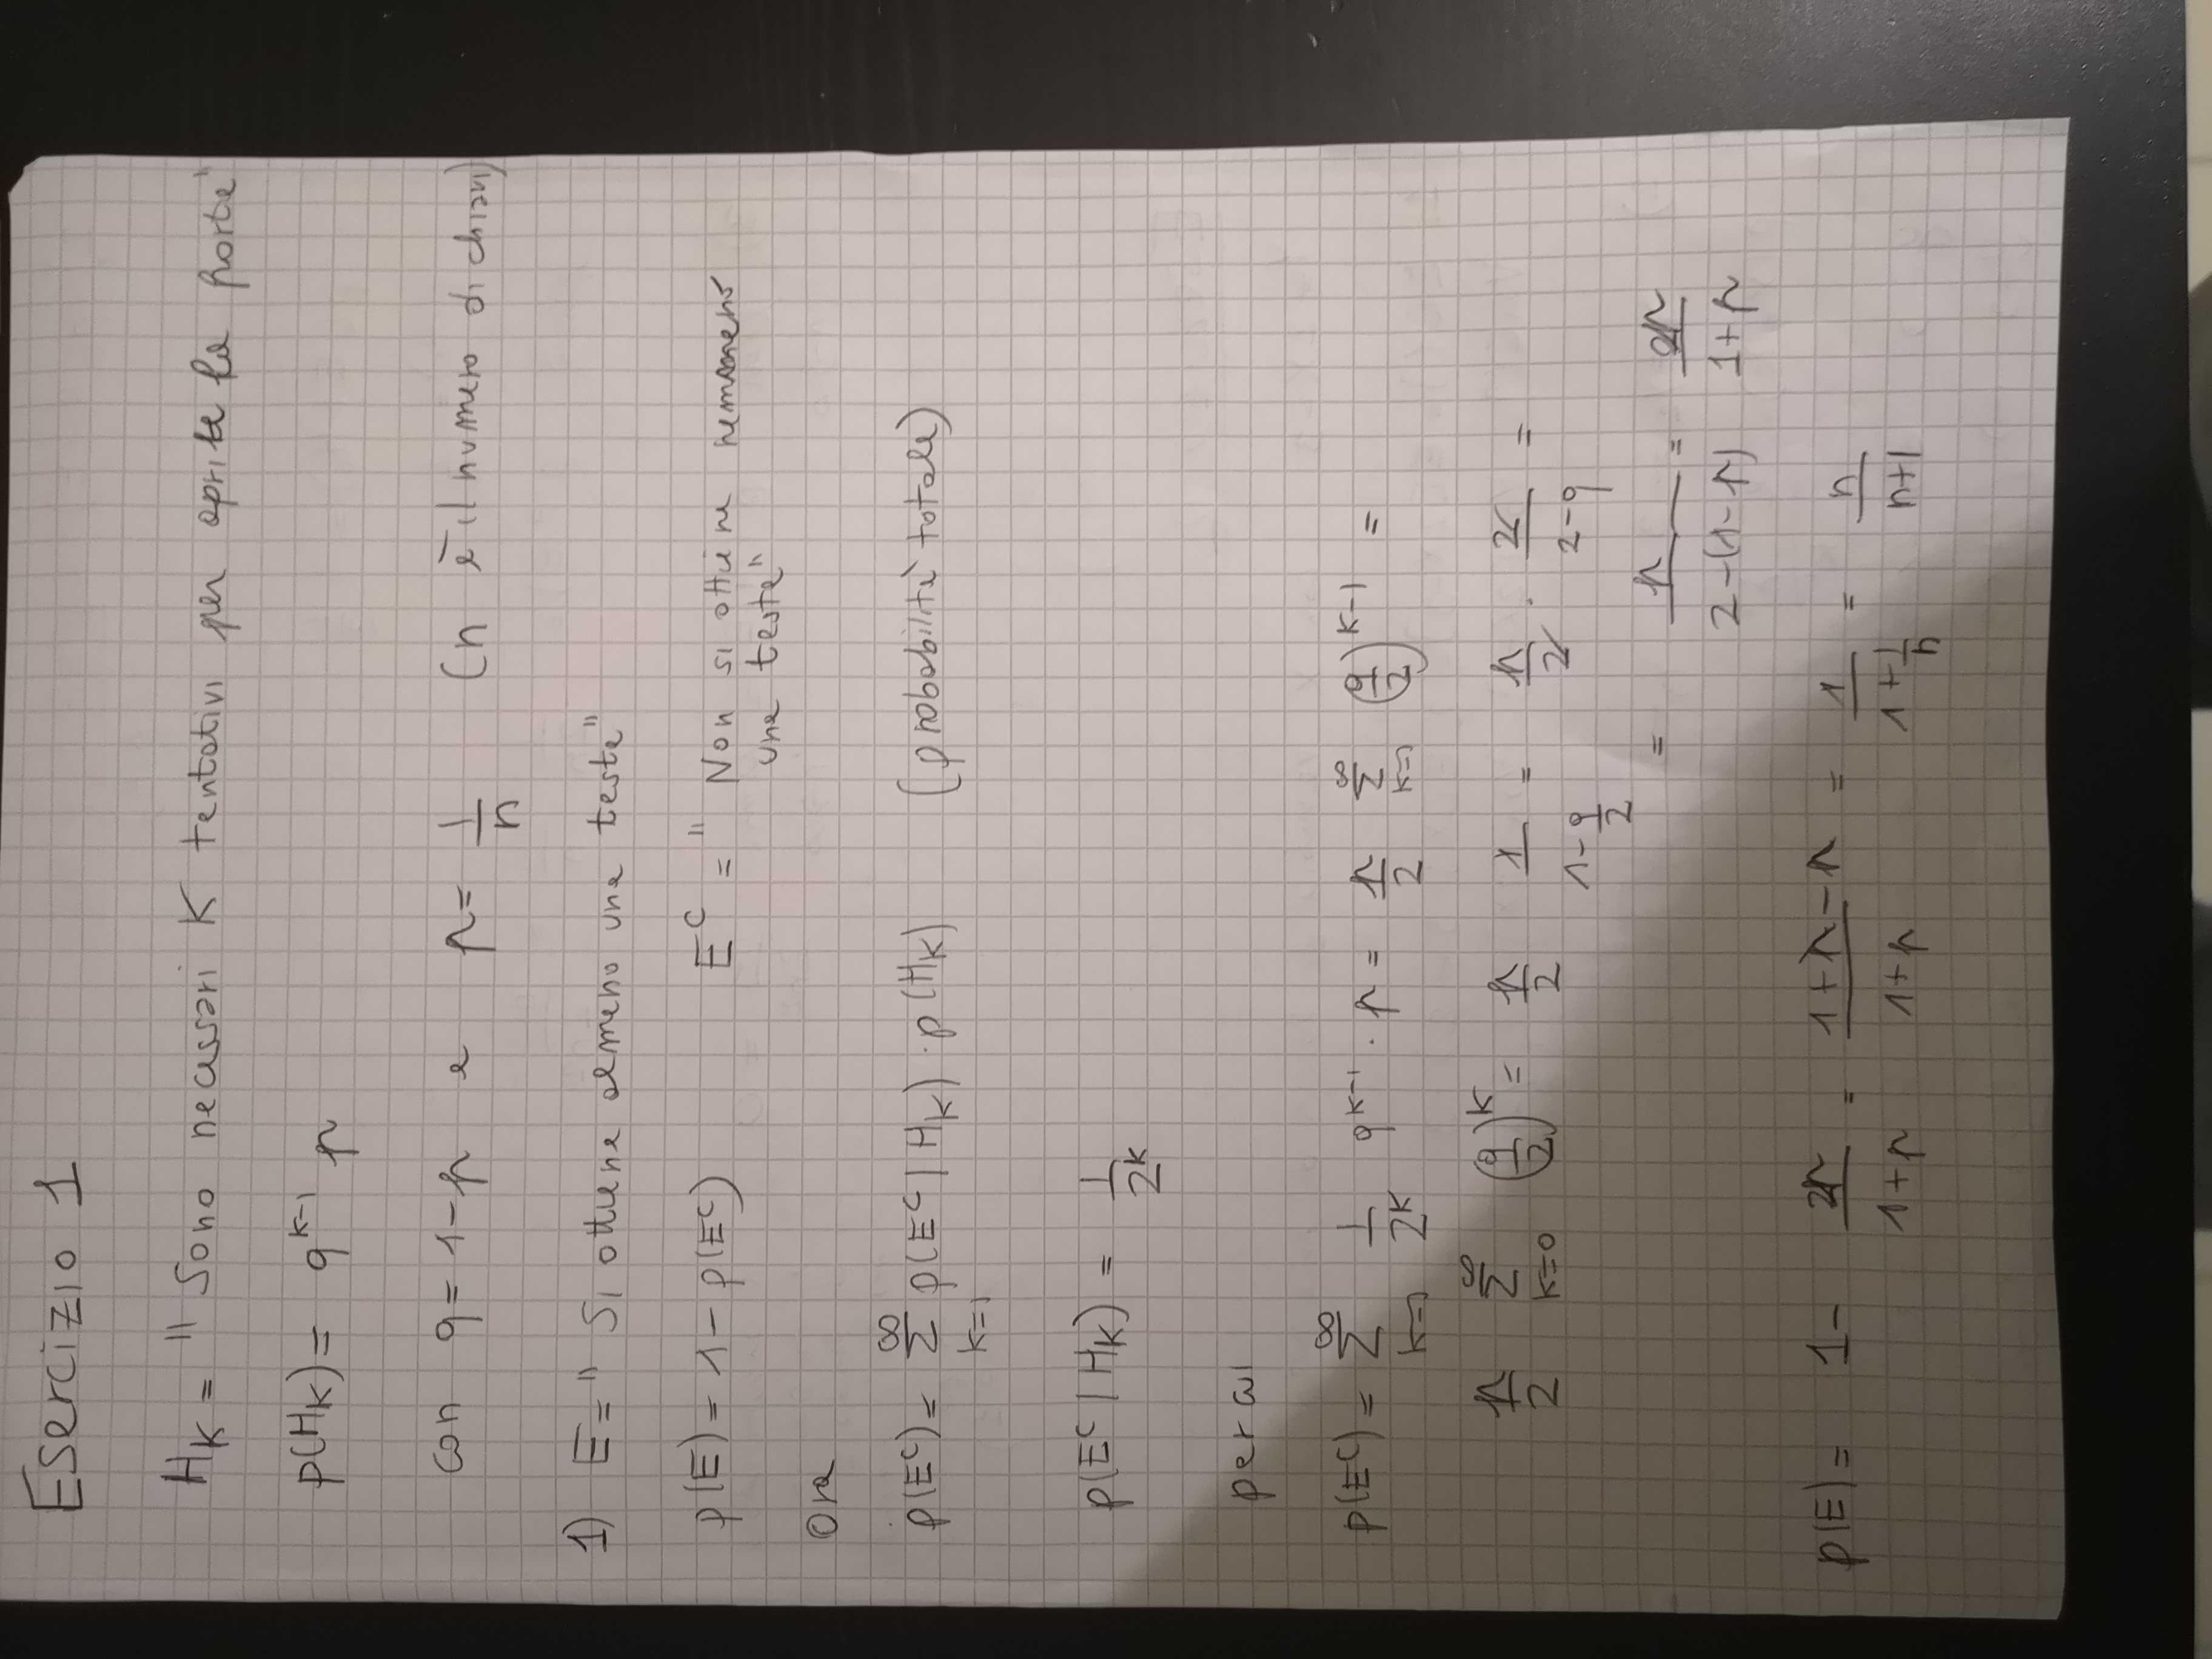 Esercizio 1
H_K = " Sono necessari K tentativi per aprire la porta"
p(H_K) = q^{K-1} p
con q = 1-p e p = 1/n (n è il numero di chiavi)
1) E = " Si ottiene almeno una testa"
p(E) = 1 - p(E^C) E^C = " Non si ottiene nemmeno
una testa"
Ora
p(E^C) = ∑_{K=1}^{∞} p(E^C | H_K) · p(H_K) (probabilità totale)
p(E^C | H_K) = 1/2^K
per cui
p(E^C) = ∑_{K=1}^{∞} 1/2^K q^{K-1} · p = p/2 ∑_{K=1}^{∞} (q/2)^{K-1} =
p/2 ∑_{K=0}^{∞} (q/2)^K = p/2 1/(1-q/2) = p/2 · 2/(2-q) =
= p/(2-(1-p)) = p/(1+p)
p(E) = 1 - p/(1+p) = (1+p-p)/(1+p) = 1/(1+1/n) = n/(n+1)